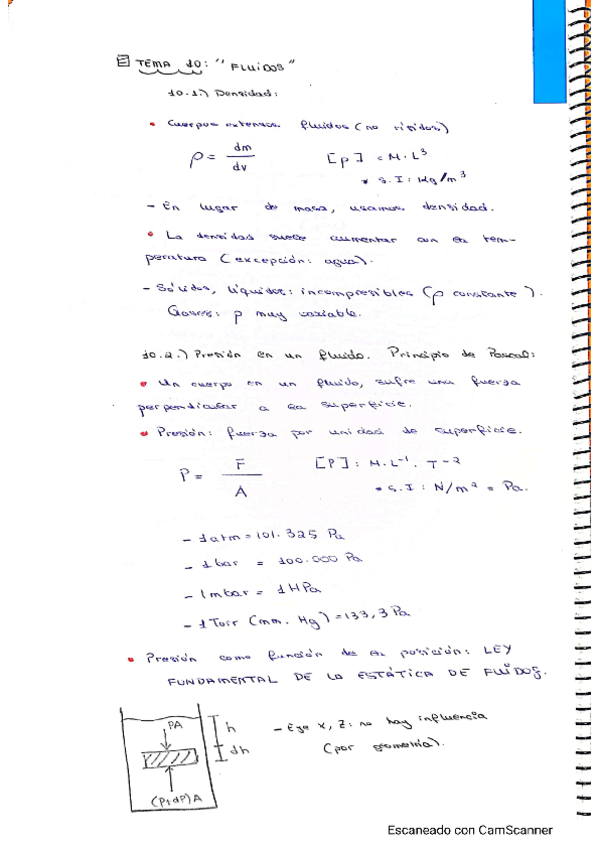 TEMA 10: "FLUIDOS"
10.1.) Densidad:
• Cuerpos extensos fluidos (no rígidos)
ρ = dm/dv [ρ] = M·L³
* S.I: Kg/m³
- En lugar de masa, usamos densidad.
• La densidad suele aumentar con la tem-
peratura (excepción: agua).
- Sólidos, líquidos: incompresibles (ρ constante).
Gases: ρ muy variable.
10.2.) Presión en un fluido. Principio de Pascal:
• Un cuerpo en un fluido, sufre una fuerza
perpendicular a la superficie.
• Presión: fuerza por unidad de superficie.
P = F/A [P]: M·L⁻¹·T⁻²
* S.I: N/m² = Pa.
- 1atm = 101.325 Pa
- 1bar = 100.000 Pa
- 1mbar = 1HPa
- 1Torr (mm. Hg) = 133,3 Pa
• Presión como función de la posición: LEY
FUNDAMENTAL DE LA ESTÁTICA DE FLUÍDOS.
PA
h
- Eje x, z: no hay influencia
dh
(por geometría).
(P+dP)A
Escaneado con CamScanner